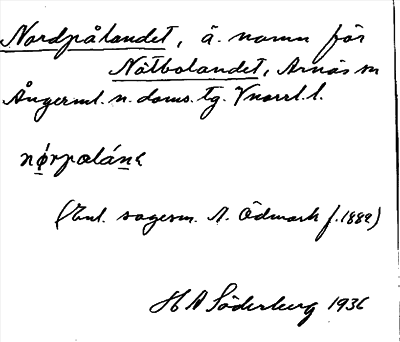 Nordpålandet, ä. namn för
Nätbolandet, Arnäs sn
Ångerml. n. doms. tg. Vnorrl. l.
nørpalána
(Enl. sagesm. A. Ödmark f. 1882)
H A Söderberg 1936